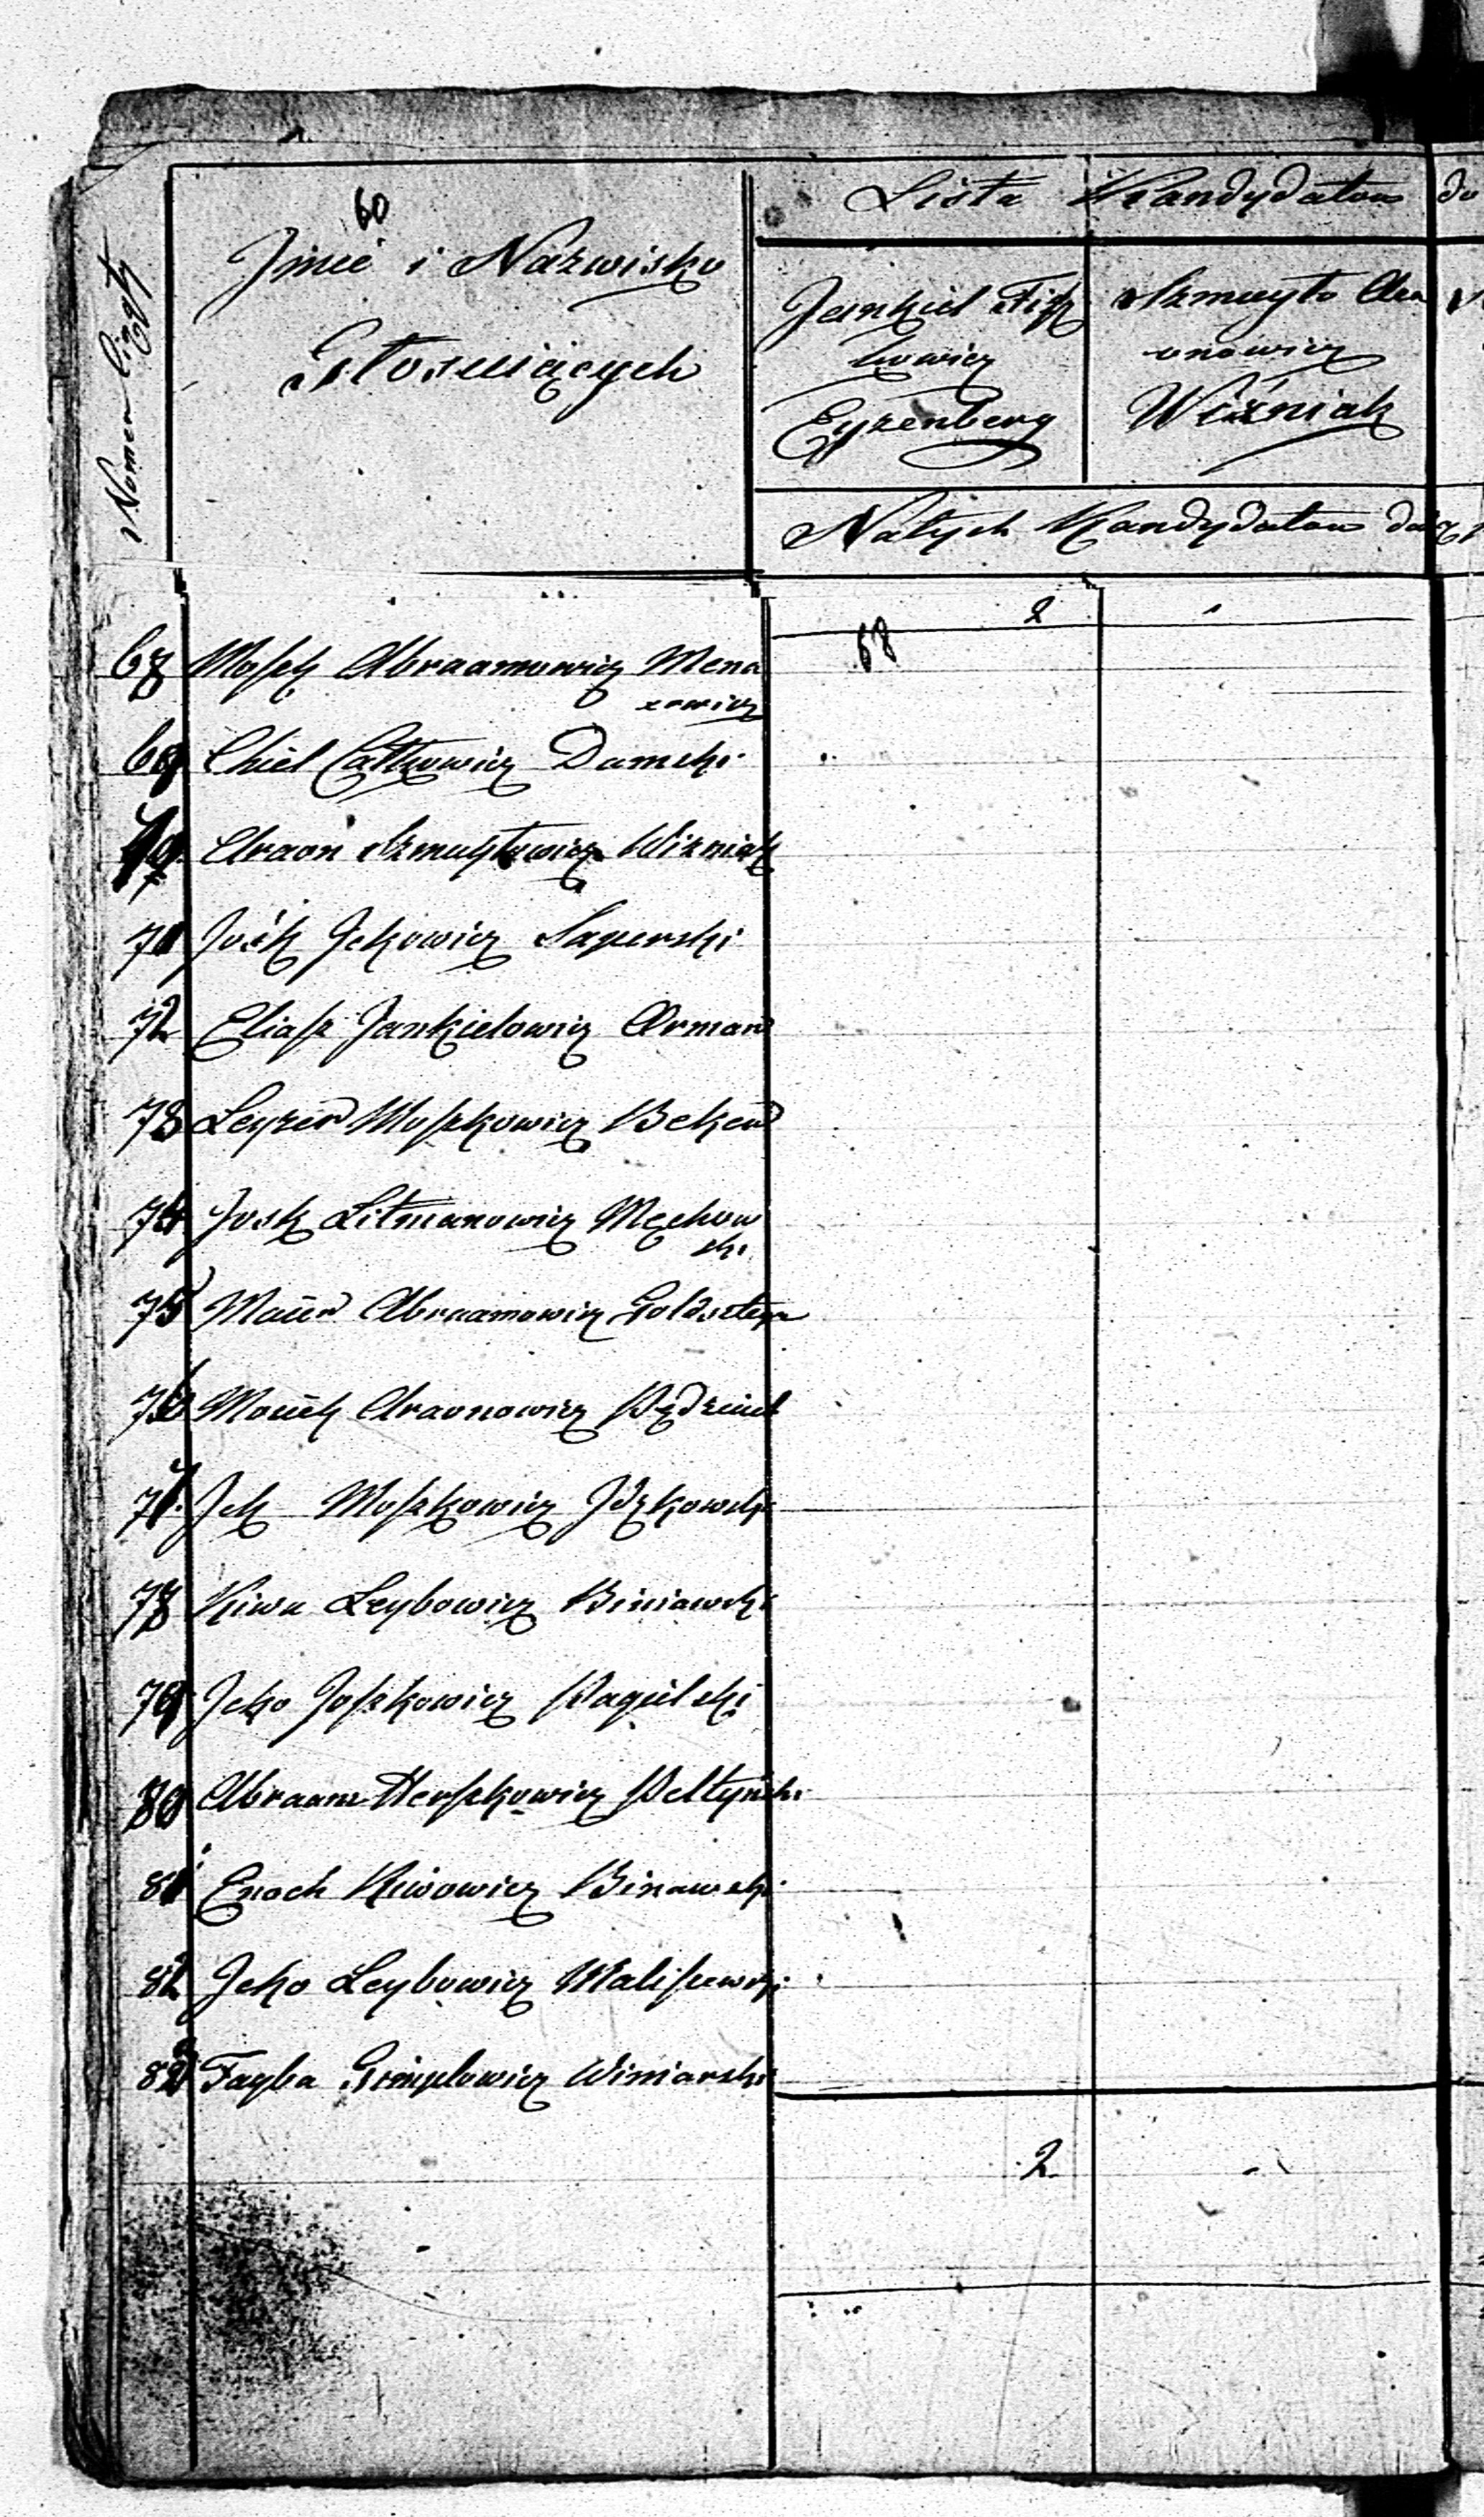 60
Lista Kandydatow do
Nomer liczby
Jmie i Nazwisko
Głosuiących
Jankiel Fisz
kowicz
Eyzenberg
Szmuyło Ara
onowicz
Wiźniak
Na tych Kandydatow
2
68 Moszk Abraamowicz Mena
xowicz
68
69 Chiel Całkowicz Damski
70 Araon Szmuyłowicz Wizniak
71 Josk Jckowicz Saperski
72 Eliasz Jankielowicz Orman
73 Leyzer Moszkowicz Beker
74 Josk Litmanowicz Męchow
ski
75 Maier Abraamowicz Goldszteyn
76 Abraamowicz
77 Jck Moszkowicz Jdzkowski
78 Kiwa Leybowicz Biniawski
79 Jcko Joszkowicz Pagielski
80 Abraam Herszkowicz Peltyński
81 Enoch Kiwowicz Binawski
82 Jcko Leybowicz Maliszewski
83 Fayba Gimplowicz Winiarski
2